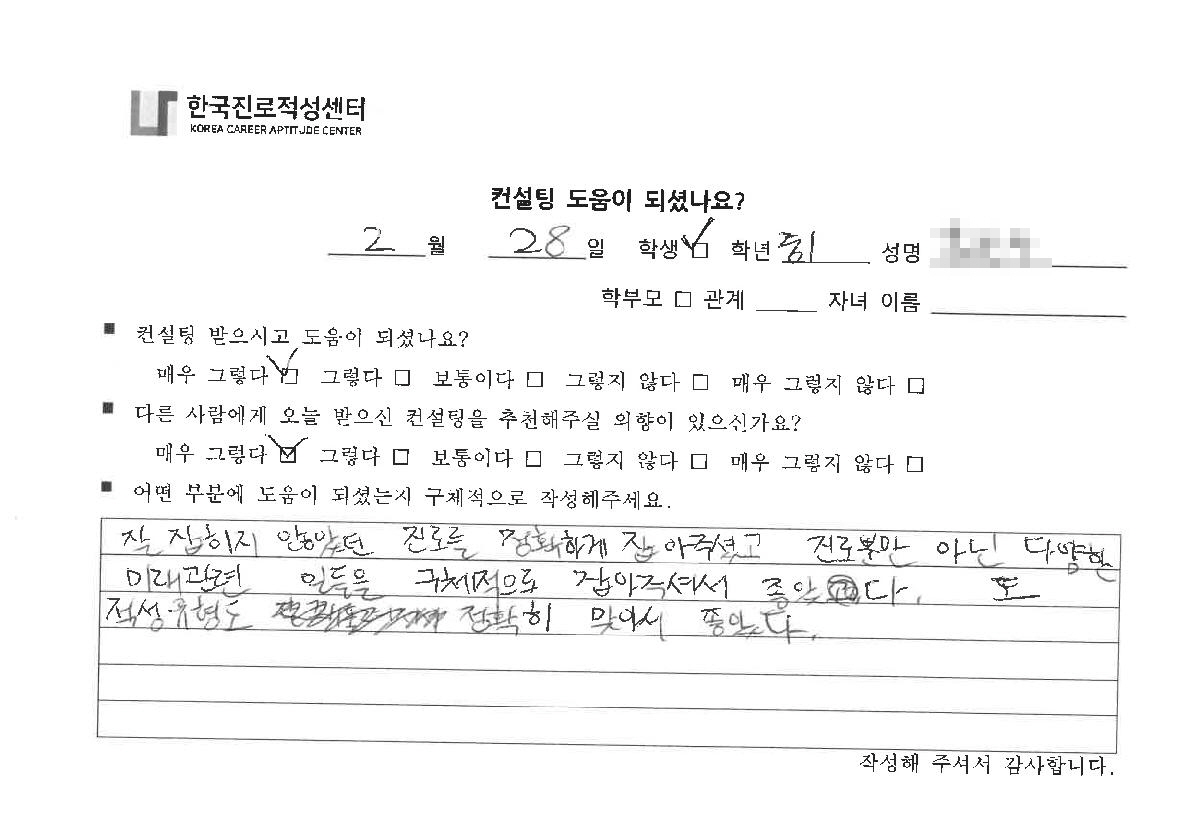 한국진로적성센터
KOREA CAREER APTITUDE CENTER
컨설팅 도움이 되셨나요?
2 월 28 일 학생 ☑ 학년 중1 성명
학부모 □ 관계 자녀 이름
■ 컨설팅 받으시고 도움이 되셨나요?
매우 그렇다 ☑ 그렇다 □ 보통이다 □ 그렇지 않다 □ 매우 그렇지 않다 □
■ 다른 사람에게 오늘 받으신 컨설팅을 추천해주실 의향이 있으신가요?
매우 그렇다 ☑ 그렇다 □ 보통이다 □ 그렇지 않다 □ 매우 그렇지 않다 □
■ 어떤 부분에 도움이 되셨는지 구체적으로 작성해주세요.
잘 잡히지 않았던 진로를 정확하게 잡아주셨고 진로뿐만 아닌 다양한
미래관련 일들을 구체적으로 잡아주셔서 좋았다. 또
적성유형도 정확히 맞아서 좋았다.
작성해 주셔서 감사합니다.